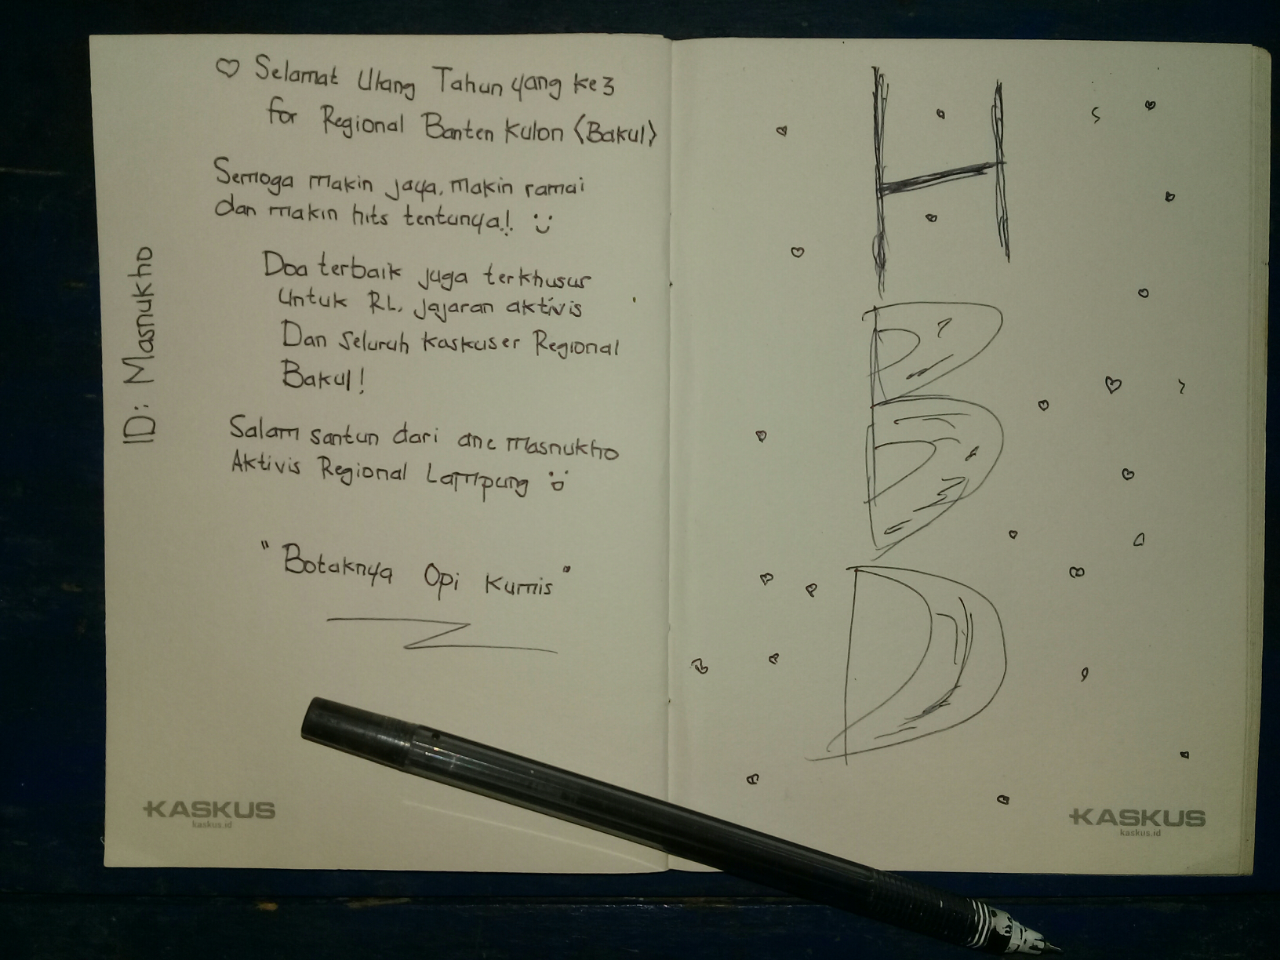 ♡ Selamat Ulang Tahun yang ke 3
for Regional Banten Kulon <Bakul>
Semoga makin jaya, makin ramai
dan makin hits tentunya!
Doa terbaik juga terkhusus
untuk RL, jajaran aktivis
Dan seluruh kaskuser Regional
Bakul!
Salam santun dari ane masnukho
Aktivis Regional Lampung
"Botaknya Opi Kumis"
ID: Masnukho
KASKUS
kaskus.id
HBD
KASKUS
kaskus.id